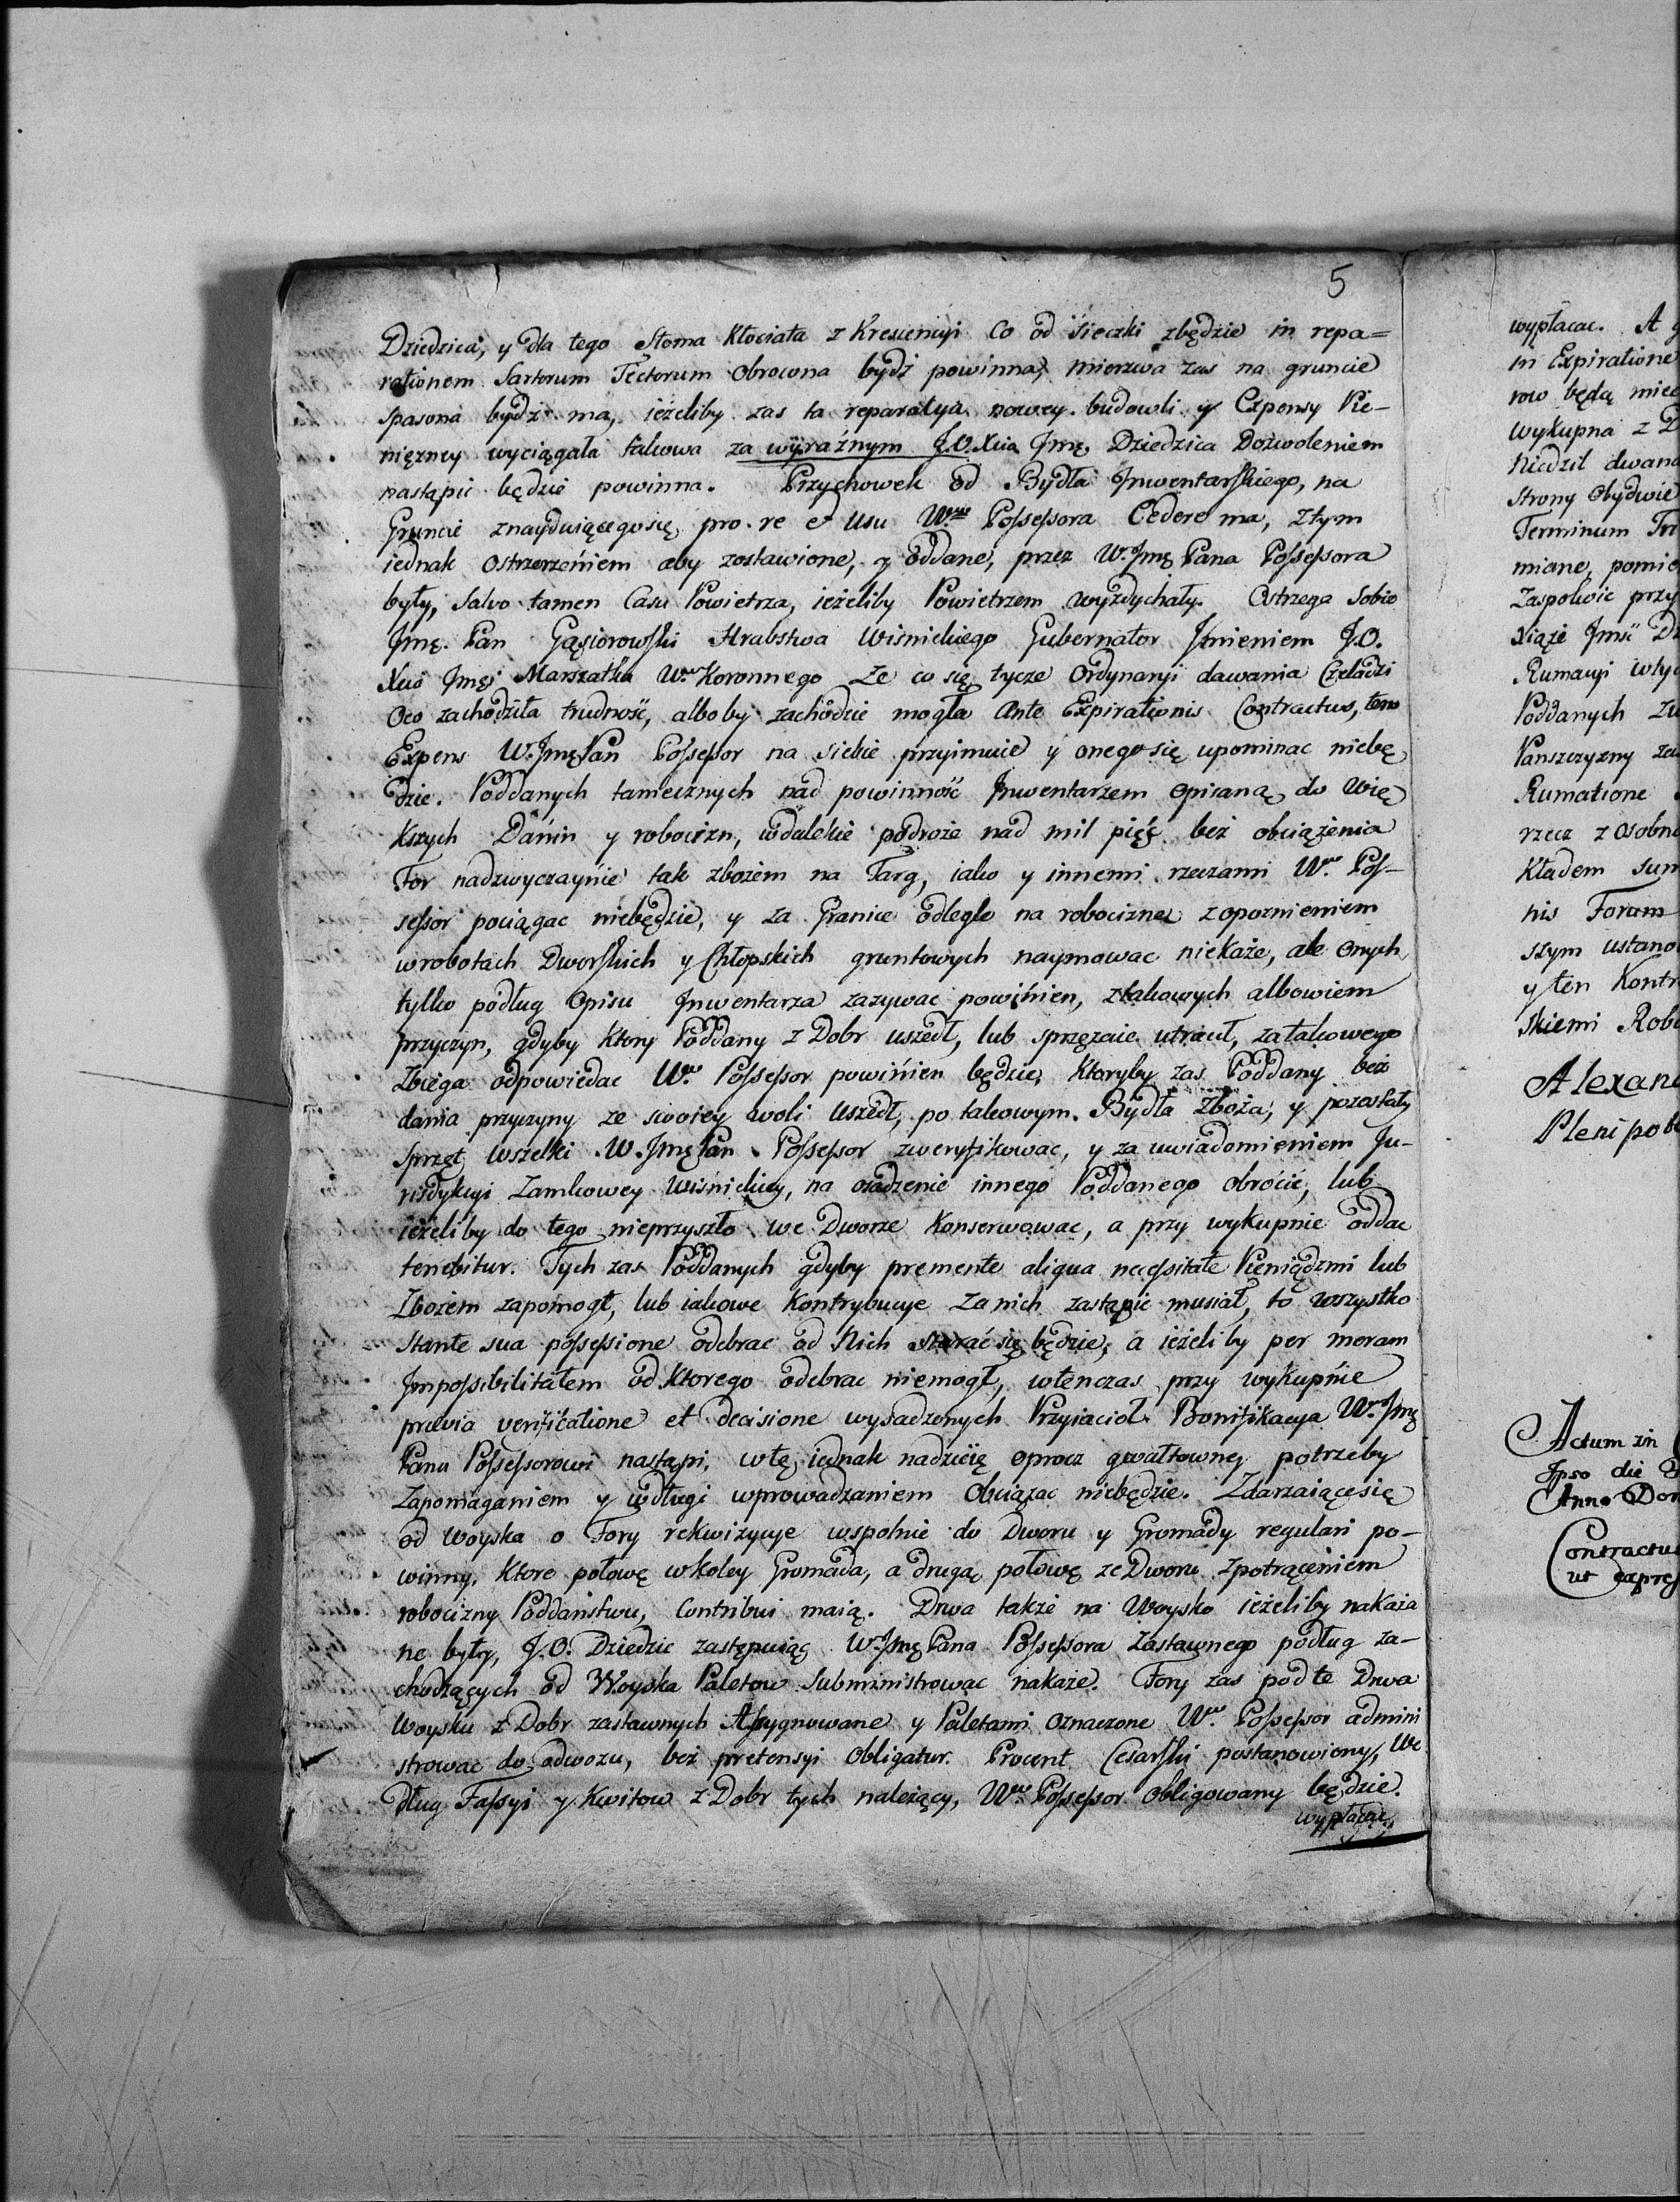 5
Dziedzica, y dla tego Słoma Kłociata z Krescencyi Co od Sieczki zbędzie in repa=
rationem Sartorum Tectorum obrocona bydź powinna, mierzwa zas na gruncie
spasona bydź ma, ieżeliby zas ta reparatya nowey budowli y Expensy Pie-
nięzney wyciągała takowa za wyraźnym J.O. Xcia Jmę Dziedzica Dozwoleniem
nastąpić będzie powinna. Przychowek od Bydła Jnwentarskiego, na
Gruncie znayduiącego się, pro re et Usu Wo Possessora Cedere ma, z tym
iednak ostrzerzeniem aby zostawione, y oddane, przez W. Jmę Pana Possessora
były, Salvo tamen Casu Powietrza, ieżeliby Powietrzem wyzdychały. Ostrzega Sobie
Jmę. Pan Gąsiorowski Hrabstwa Wisnickiego Gubernator Jmieniem J.O.
Xcia Jmęj Marszałka Wo Koronnego Ze co się tycze Ordynaryi dawania Czeladzi
Oco zachodziła trudność, alboby zachodzic mogła Ante Expirationis Contractus, ten
Expens W. Jmę Pan Possessor na Siebie przyimuie y onego się upominac niebę
dzie. Poddanych tamecznych nad powinność Jnwentarzem opisaną do Wię
kszych Danin y robocizn, w dalekie podroże nad mil pięć bez obciążenia
For nadzwyczaynie tak zbożem na Targ, iako y innemi rzeczami Wo Pos-
sessor pociągac niebędzie, y za Granice odległe na robociznę z opoznieniem
w robotach Dworskich y Chłopskich gruntowych naymowac niekaże, ale onych
tylko podług Opisu Jnwentarza zazywac powinien, z takowych albowiem
przyczyn, gdyby Ktory Poddany z Dobr uszedł, lub sprzęzaie utracił, za takowego
Zbiega odpowiedac Wo Possessor powinien będzie, Ktoryby zas Poddany bez
dania przyczyny ze swoiey woli uszedł, po takowym Bydła Zboża, y pozostały
Sprzęt wszelki W. Jmę Pan Possessor zweryfikowac, y za uwiadomieniem Ju-
risdykcyi Zamkowey Wisnickiey, na osadzenie innego Poddanego obrócić, lub
ieżeliby do tego nieprzyszło we Dworze Konserwowac, a przy wykupnie oddac
tenebitur. Tych zas Poddanych gdyby premente aliqua necessitate Pieniądzmi lub
Zbożem zapomogł, lub iakowe Kontrybucye za nich zastąpic musiał, to wszystko
Stante sua possessione odebrac od Nich starać się będzie, a ieżeliby per meram
Jmpossibilitatem od Ktorego odebrac niemogł, wtenczas przy wykupnie
prævia verificatione et decisione wysadzonych Przyiacioł Bonifikacya Wo Jmę
Panu Possessorowi nastąpi, w tę iednak nadzieię oprocz gwałtowney potrzeby
Zapomaganiem y w długi wprowadzaniem Obciązac niebędzie. Zdarzaiące się
od Woyska o Fory rekwizycye wspolnie do Dworu y Gromady regulari po-
winny, Ktore połowę w koley Gromada, a drugą połowę ze Dworu z potrąceniem
robocizny Poddanstwu, Contribui maią. Drwa także na Woysko ieżeliby nakaza
ne były, J.O. Dziedzic zastępuiąc W. Jmę Pana Possessora Zastawnego podług za-
chodzących od Woyska Paletow Subministrowac nakaże. Fory zas pod te Drwa
Woysku z Dobr zastawnych Assygnowane y Paletami oznaczone Wo Possessor admini
strowac do adwozu, bez pretensyi Obligatur. Procent Cesarski postanowiony, We
dług Fassyi y Kwitow z Dobr tych należący, Wo Possessor obligowany będzie.
wypłacac
wypłacac. A
in Expiratione
row będą
wykupna z
Niedzil
Strony Obydwie
Terminum
miane,
Zaspokoic
Xiąże Jmść
Rumacyi
Poddanych
Panszczyzny
Rumatione
rzecz z
Kładem
nis Forum
szym
y ten
skiemi
Actum in
Ipso die
Anno
Contractus
ut